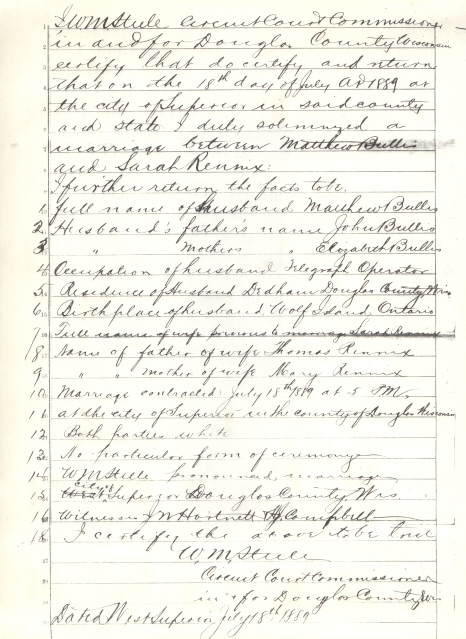 I WM Steele Circuit Court Commissioner
in and for Douglas County Wisconsin
certify that do certify and return
that on the 18th day of July AD 1889 at
the city of Superior in said county
and state I duly solemnized a
marriage between Matthew Bullis
and Sarah Rennix:
I further return the facts to be.
1. full name of Husband Matthew Bullis
2. Husband's father's name John Bullis
3. " Mothers " Elizabeth Bullis
4. Occupation of husband Telegraph Operator
5. Residence of Husband Dedham Douglas County Wis
6. Birth place of husband Wolf Island Ontario
7. Full name of wife previous to marriage Sarah Rennix
8. Name of father of wife Thomas Rennix
9. " " mother of wife Mary Rennix
10. Marriage contracted July 18th 1889 at 5 P.M.
11. at the city of Superior in the county of Douglas Wisconsin
12. Both parties white
13. No particular form of ceremony
14. WM Steele pronounced marriage
15. West city of Superior Douglas County, Wis
16. Witnesses J W Hartnett Campbell
I certify the above to be true
W. M. Steele
Circuit Court Commissioner
in & for Douglas County Wis
Dated West Superior July 18th 1889